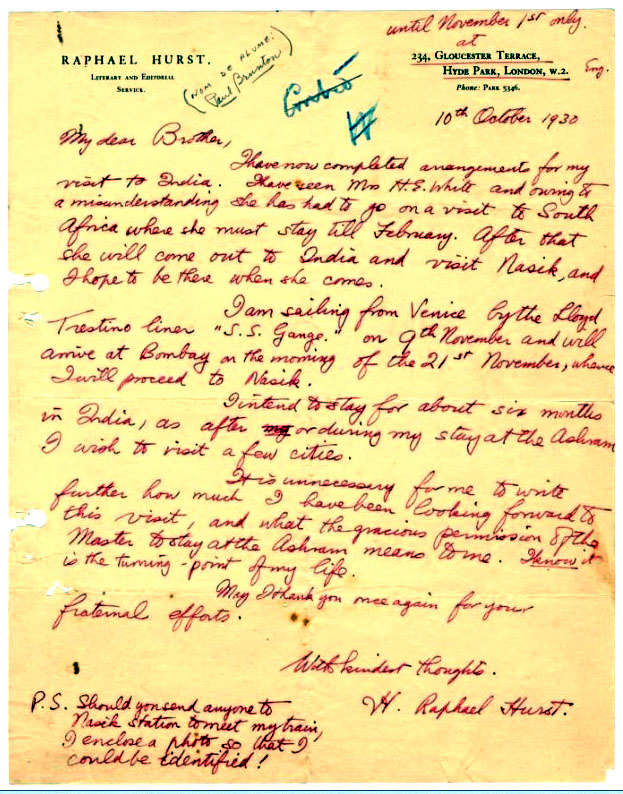 until November 1st only.
at
RAPHAEL HURST.
LITERARY AND EDITORIAL
SERVICE.
(NOM DE PLUME:
Paul Brunton)
234, GLOUCESTER TERRACE,
HYDE PARK, LONDON, W.2.
Eng.
Phone: PARK 5346.
10th October 1930
My dear Brother,
I have now completed arrangements for my
visit to India. I have seen Mrs H.E. White and owing to
a misunderstanding she has had to go on a visit to South
Africa where she must stay till February. After that
she will come out to India and visit Nasik, and
I hope to be there when she comes.
I am sailing from Venice by the Lloyd
Trestino liner "S.S. Gange." on 9th November and will
arrive at Bombay on the morning of the 21st November, whence
I will proceed to Nasik.
I intend to stay for about six months
in India, as after my or during my stay at the Ashram
I wish to visit a few cities.
It is unnecessary for me to write
further how much I have been looking forward to
this visit, and what the gracious permission of the
Master to stay at the Ashram means to me. I know it
is the turning-point of my life.
May I thank you once again for your
fraternal efforts.
With kindest thoughts.
H. Raphael Hurst.
P.S. Should you send anyone to
Nasik Station to meet my train,
I enclose a photo so that I
could be identified!